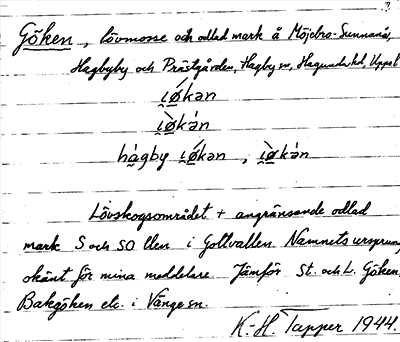 3.
Göken, lövmosse och odlad mark å Möjebro-Sunnanå,
Hagbyby och Prästgården, Hagby sn, Hagunda hd, Uppl
hagby
Lövskogsområdet + angränsande odlad
mark S och SO llen i Gottvallen. Namnets ursprung
okänt för mina meddelare Jämför St. och L. Göken,
Bakgöken etc. i Vänge sn.
K.-H. Tapper 1944.